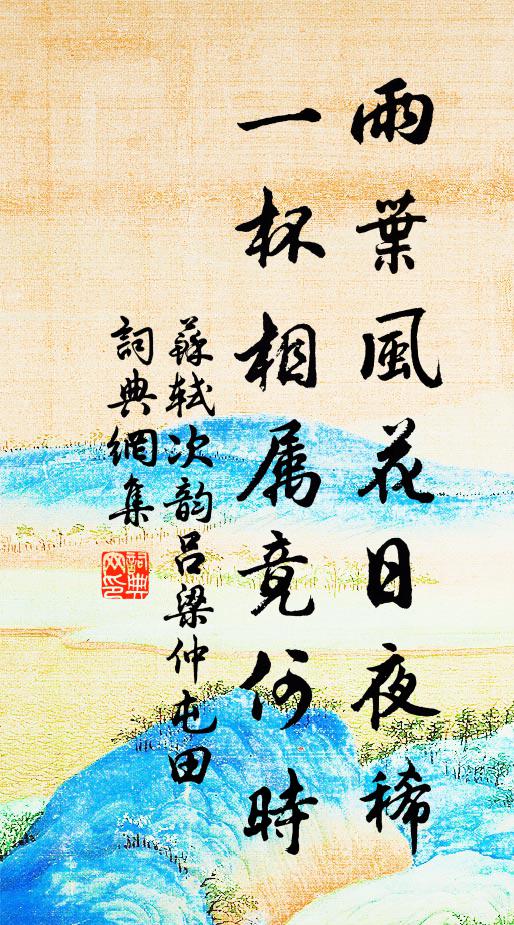 雨葉風花日夜稀
一杯相属竟何時
蘇軾次韵吕梁仲屯田
詞典網集
詞典网印